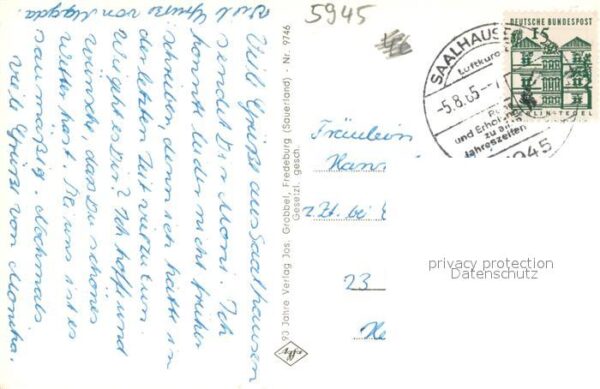 Viele Grüße aus Saalhausen
sendet Dir Moni. Ich
konnte leider nicht früher
schreiben, denn ich hatte in
der letzten Zeit viel zu tun.
Wie geht es Dir? Ich hoffe und
wünsche, daß Du schönes
Wetter hast. Bei uns ist es
nur mäßig. Nochmals
viele Grüße von Monika.
Viele Grüße von Magda.
5945
93 Jahre Verlag Jos. Grobbel, Fredeburg (Sauerland) - Nr. 9746
Gesetzl. gesch.
Agfa
SAALHAUSE
Luftkuro
-5.8.65-
und Erholung
zu all
Jahreszeiten
5945
DEUTSCHE BUNDESPOST
15
BERLIN-TEGEL
Fräulein
Han
z.Zt. bei
23
He
privacy protection
Datenschutz